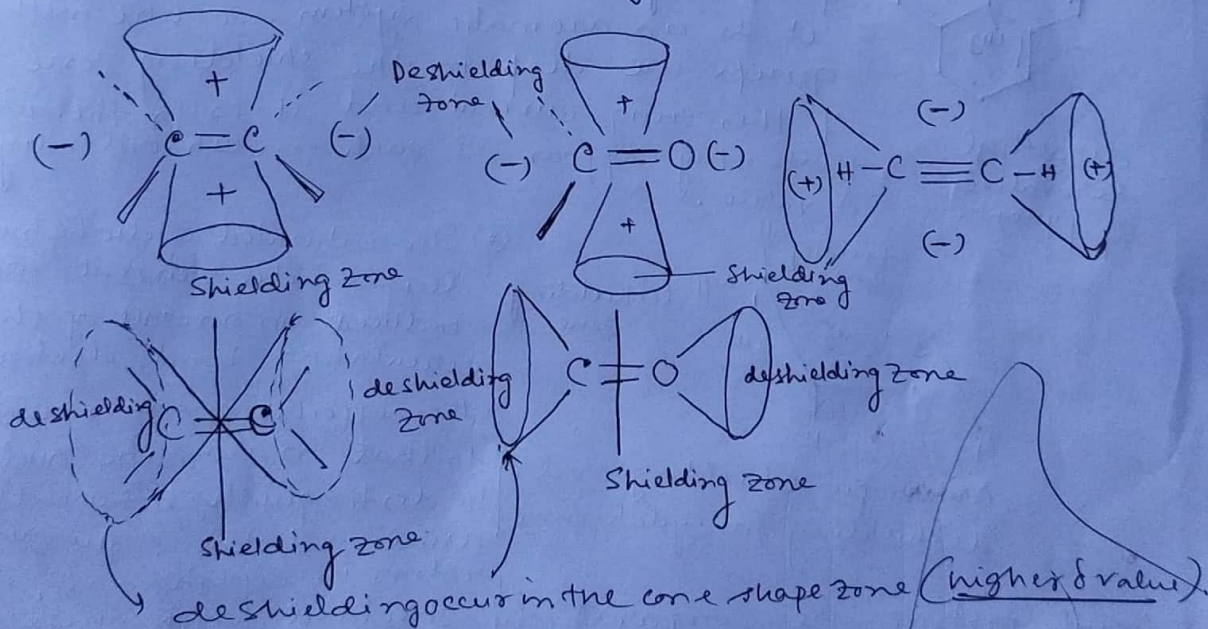 +
Deshielding
zone
+
(-) C=C (-)
(-) C=O (-)
(-)
(+) H-C≡C-H (+)
(-)
+
+
Shielding zone
Shielding
zone
deshielding C=C deshielding
zone
deshielding C=O deshielding zone
Shielding zone
Shielding zone
deshielding occur in the cone shape zone (higher δ value).